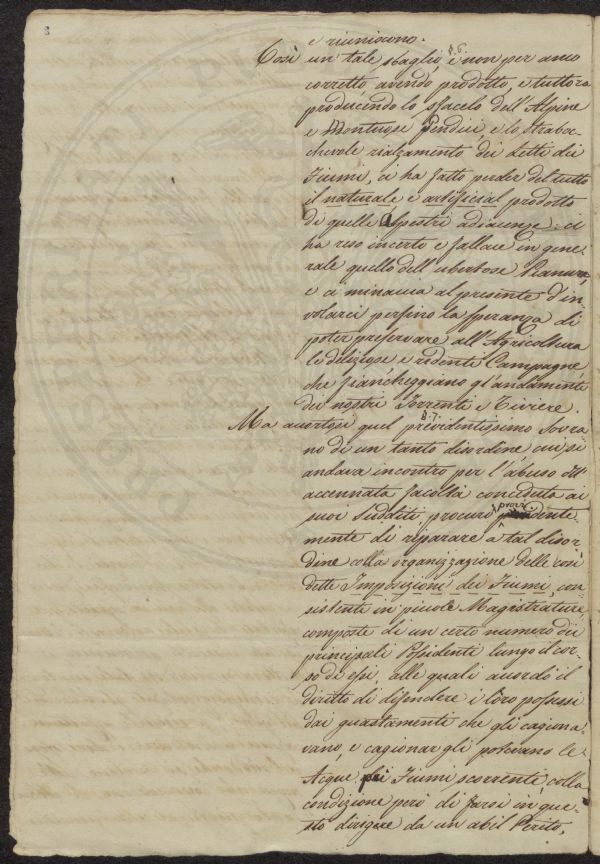 8
e riuniscono.
§. 6.
Così un tale sbaglio, e non per anco
corretto, avendo prodotto, e tuttora
producendo lo sfacelo dell'Alpine
e Montuose Pendici, e lo straboc-
chevole rialzamento dei Letti dei
Fiumi, ci ha fatto perder del tutto
il naturale e artificial prodotto
di quelle Alpestri adiacenze: ci
ha reso incerto e fallace in gene-
rale quello dell'ubertose Pianure,
e ci minaccia al presente d'in-
volarci perfino la speranza di
poter preservare all'Agricoltura
le deliziose e ridenti Campagne,
che fiancheggiano gl'andamenti
dei nostri Torrenti e Riviere.
§. 7.
Ma avvertosi quel previdentissimo Sovra-
no di un tanto disordine cui si
andava incontro per l'abuso dell'
accennata facoltà conceduta ai
suoi Sudditi, procurò provi dente-
mente di riparare a tal disor-
dine colla organizzazione delle così
dette Imposizioni dei Fiumi, con-
sistente in piccole Magistrature
composte di un certo numero dei
principali Possidenti lungo il cor-
so di essi, alle quali accordò il
diritto di difendere i loro possessi
dai guastamenti che gli cagiona-
vano, e cagionar gli potevano le
Acque pei Fiumi scorrenti, colla
condizione però di farsi in que-
sto dirigere da un abil Perito,